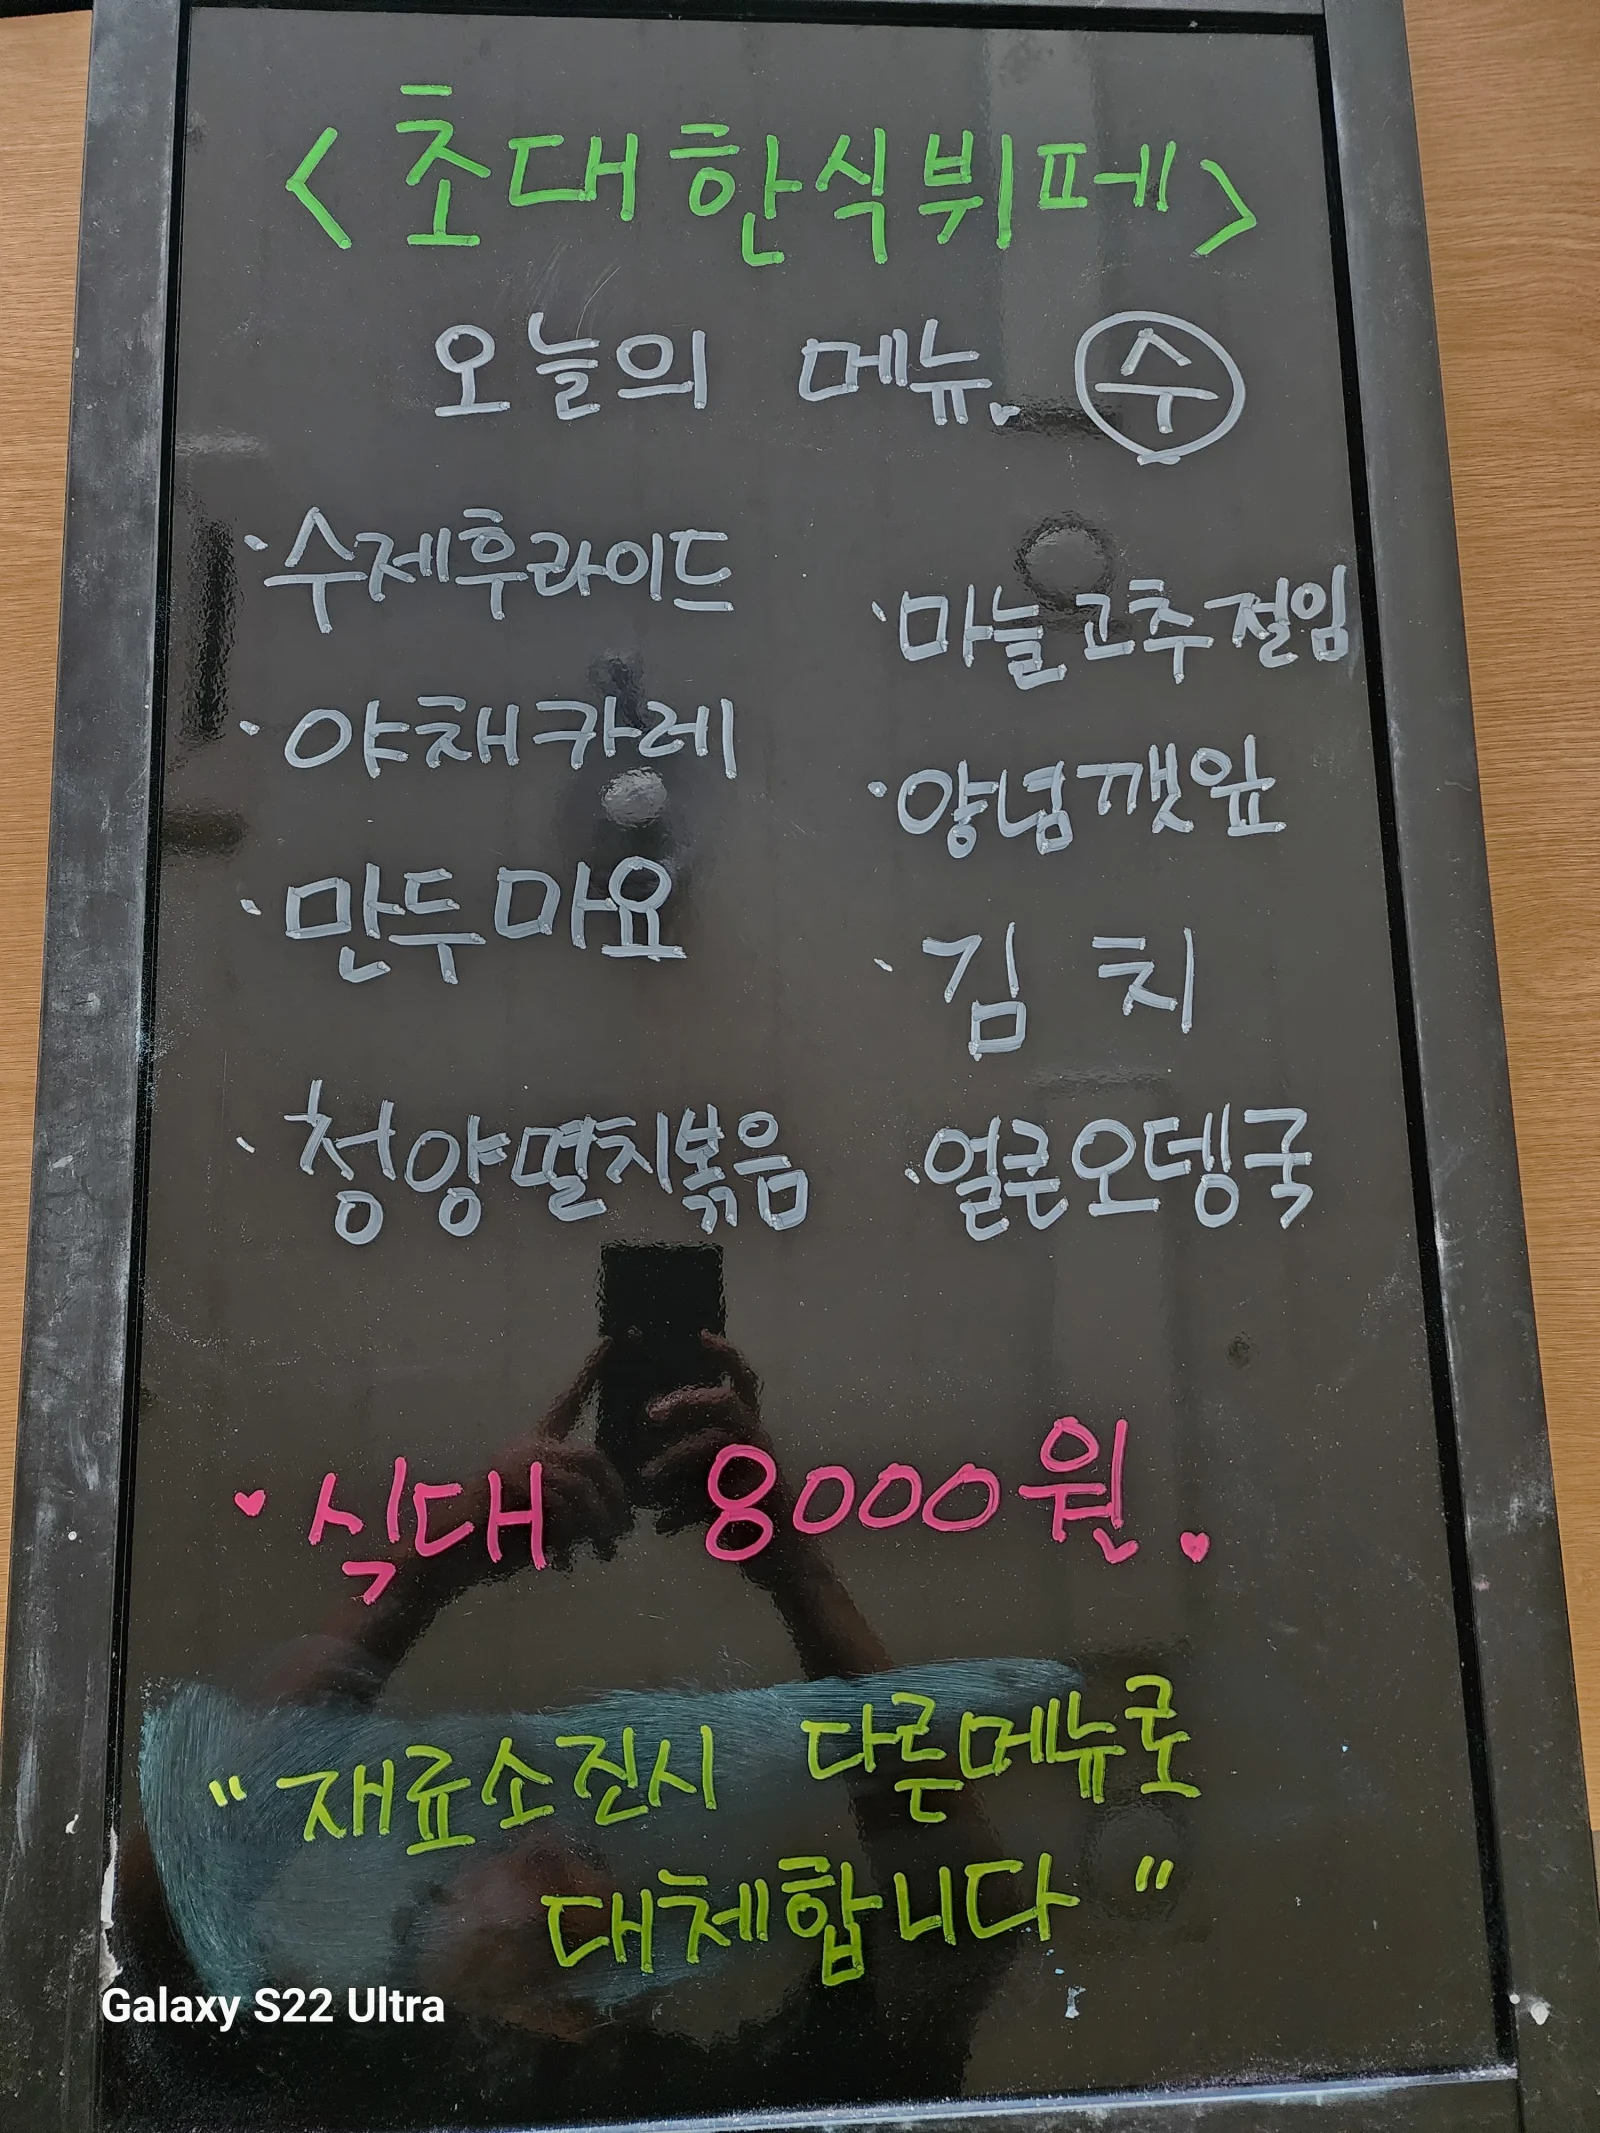 <초대한식뷔페>
오늘의 메뉴. 수
·수제후라이드
·야채카레
·만두마요
·청양멸치볶음
·마늘고추절임
·양념깻잎
·김치
·얼큰오뎅국
♥식대 8000원.♥
"재료소진시 다른메뉴로
대체합니다"
Galaxy S22 Ultra